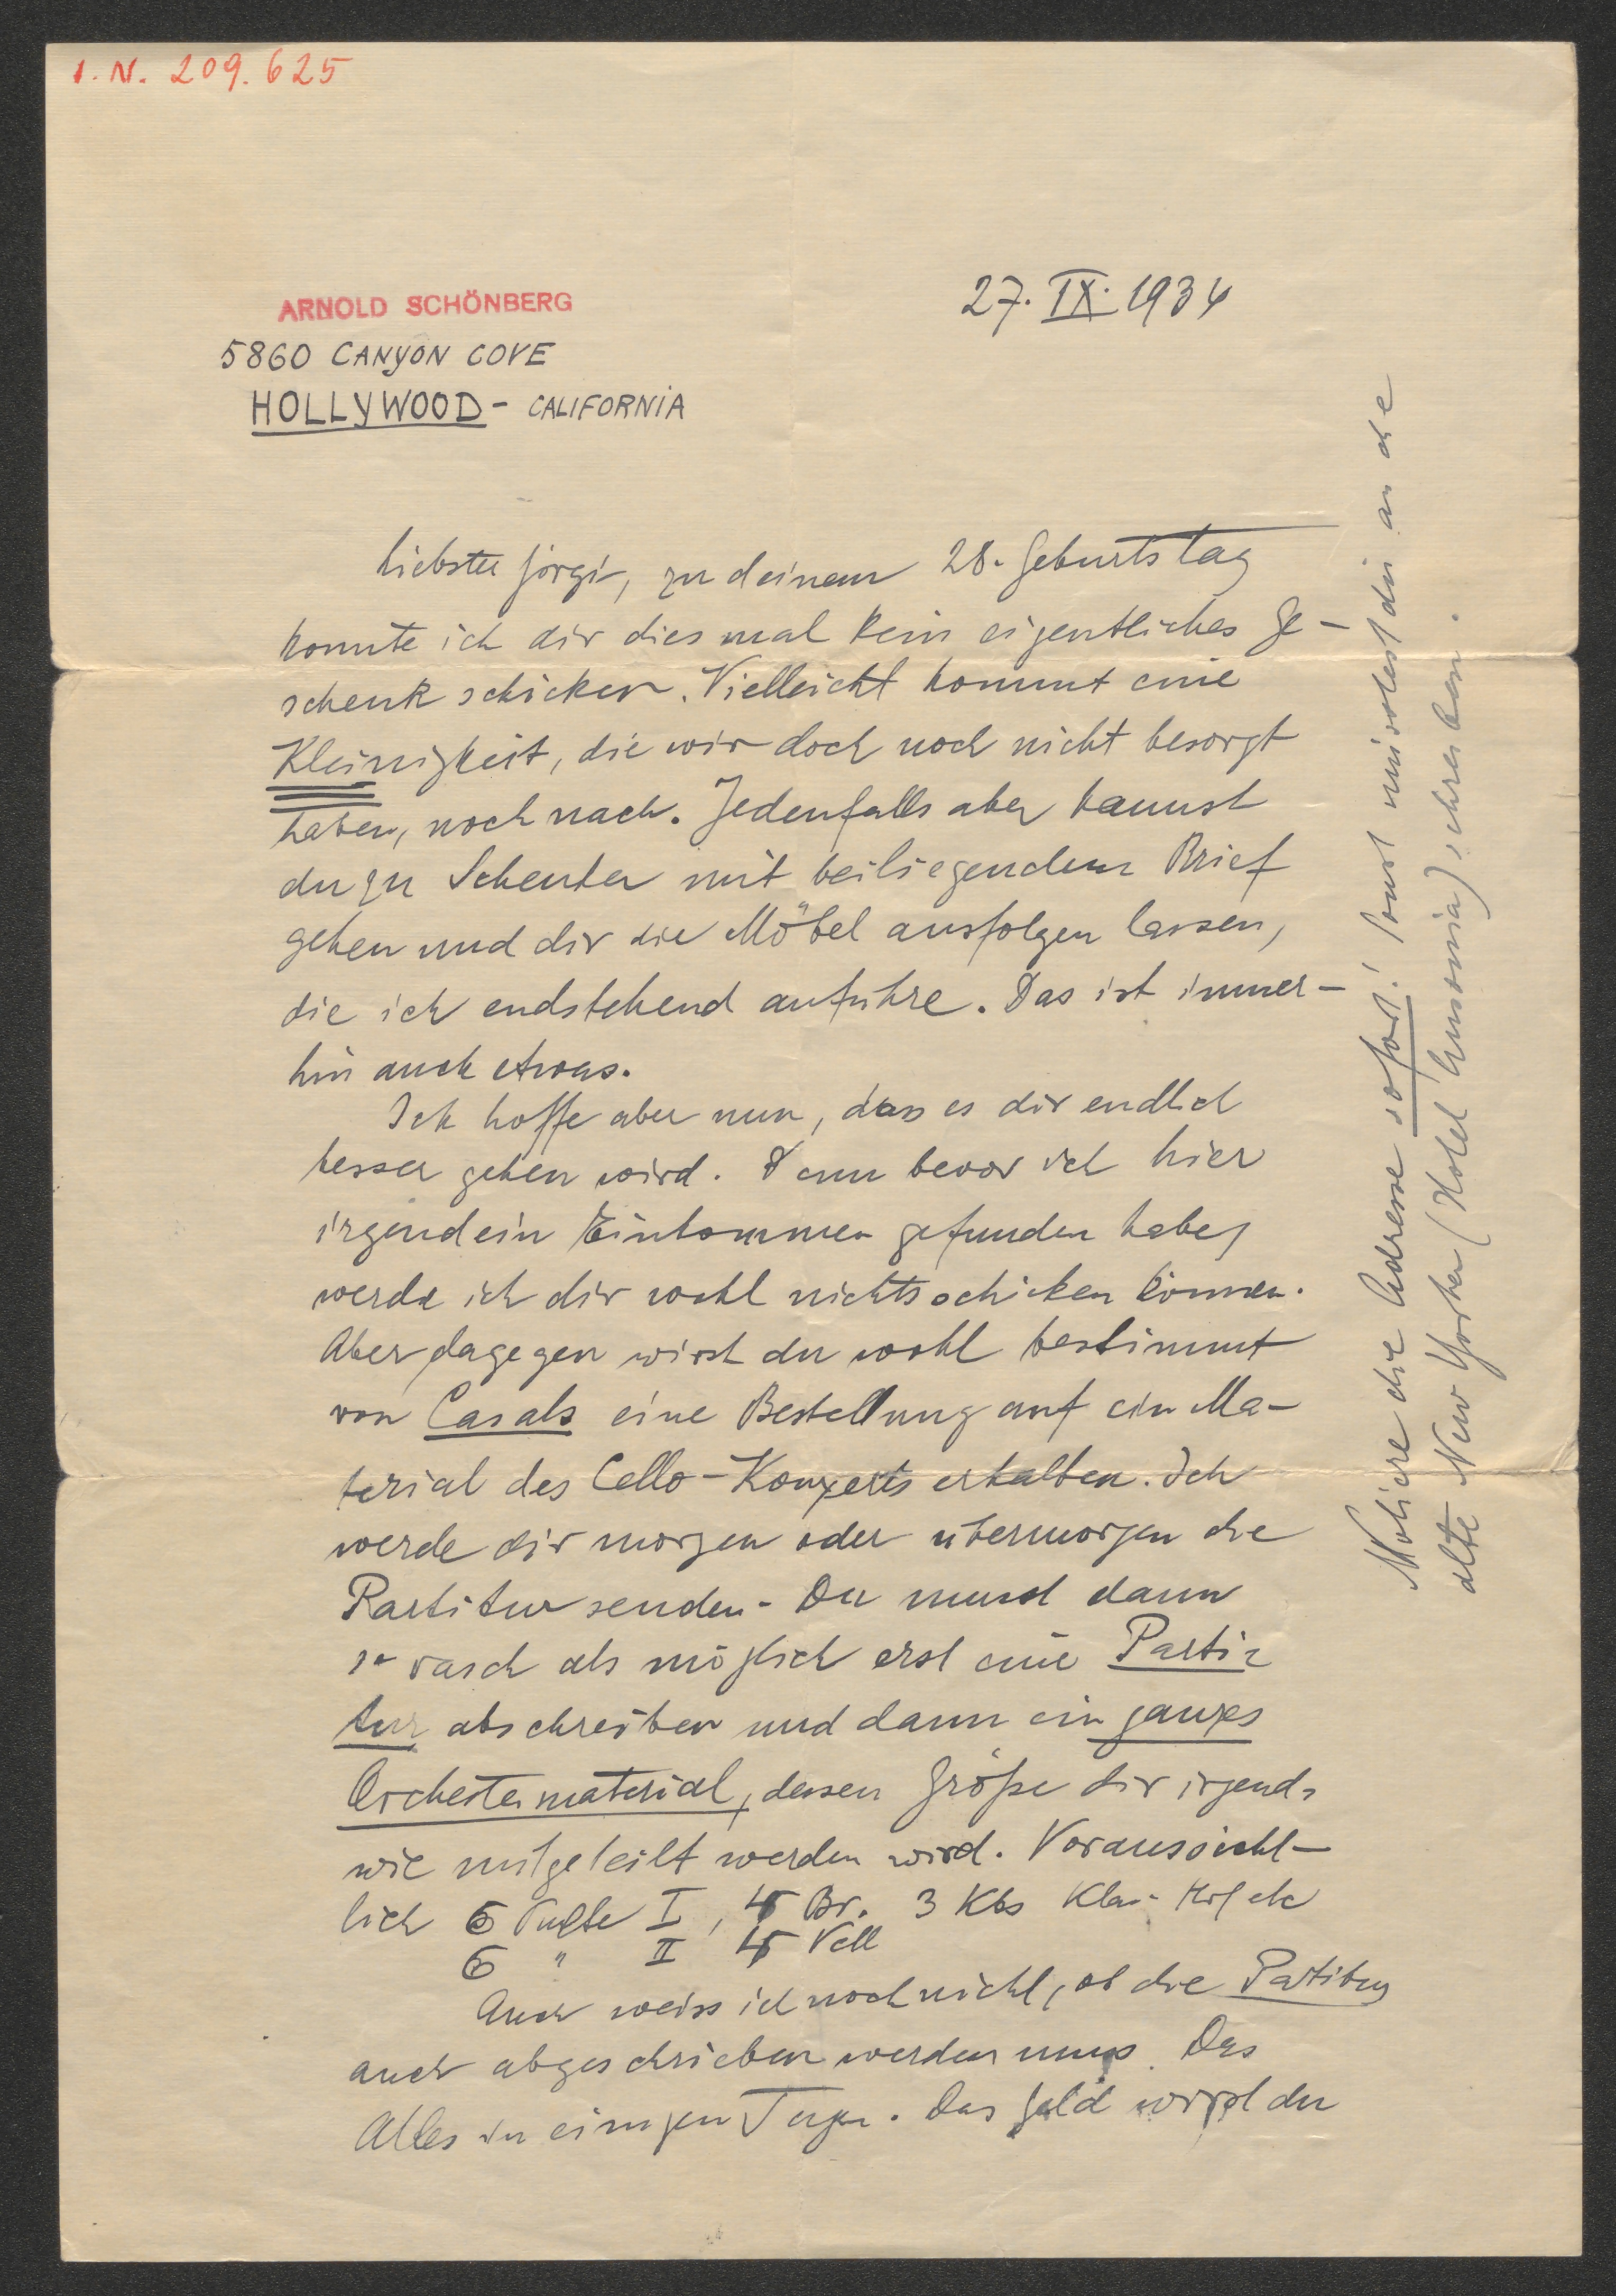 I. N. 209.625
ARNOLD SCHÖNBERG
5860 CANYON COVE
HOLLYWOOD - CALIFORNIA
27. IX. 1934
Liebster Görgi, zu deinem 28. Geburtstag
konnte ich dir diesmal kein eigentliches Ge-
schenk schicken. Vielleicht kommt eine
Kleinigkeit, die wir doch noch nicht besorgt
haben, noch nach. Jedenfalls aber kannst
du zu Schenker mit beiliegendem Brief
gehen und dir die Möbel ausfolgen lassen,
die ich endstehend anführe. Das ist immer-
hin auch etwas.
Ich hoffe aber nun, dass es dir endlich
besser gehen wird. Denn bevor ich hier
irgendein Einkommen gefunden habe,
werde ich dir wohl nichts schicken können.
Aber dagegen wirst du wohl bestimmt
von Casals eine Bestellung auf ein Ma-
terial des Cello-Konzerts erhalten. Ich
werde dir morgen oder übermorgen die
Partitur senden. Du musst dann
so rasch als möglich erst eine Parti-
tur abschreiben und dann ein ganzes
Orchestermaterial, dessen Größe dir irgend-
wie mitgeteilt werden wird. Voraussicht-
lich 6 Pulte I, 4 Br. 3 Kbs Klav. Hrf etc
6 " II 4 Vcll
Auch weiss ich noch nicht, ob die Partitur
auch abgeschrieben werden muss. Das
Alles in einigen Tagen. Das Geld wirst du
Notiere die Adresse sofort! Sonst müsstest du an die
alte New Yorker (Hotel Ansonia) schreiben.